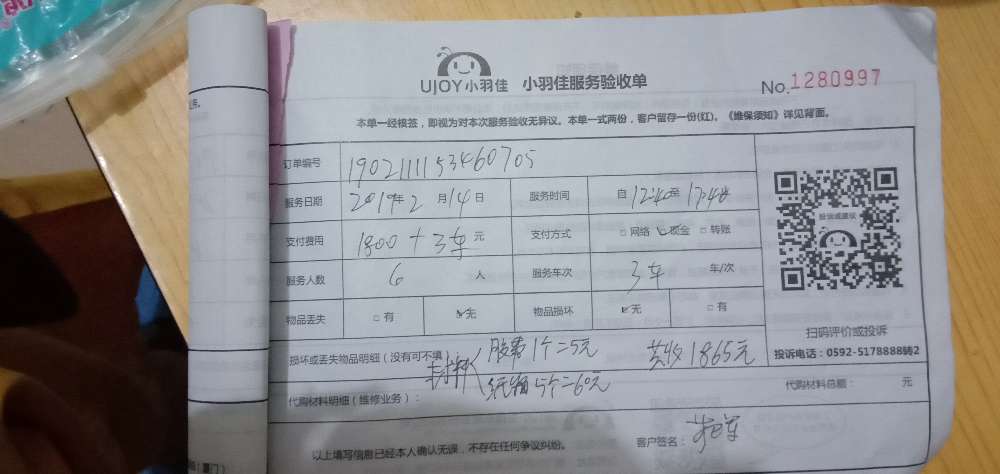 UJOY小羽佳 小羽佳服务验收单
No.1280997
本单一经核签，即视为对本次服务验收无异议。本单一式两份，客户留存一份(红)。《维保须知》详见背面。
订单编号 190211115346070 5
服务日期 2019年2月14日 服务时间 自12:40至17:40
支付费用 1800+3车元 支付方式 □网络 ☑现金 □转账
服务人数 6人 服务车次 3车 车/次
物品丢失 □有 ☑无 物品损坏 ☑无 □有
投诉或建议
扫码评价或投诉
投诉电话：0592-5178888转2
损坏或丢失物品明细（没有可不填
胶带1个=5元 共收1865元
纸箱5个=60元
代购材料明细（维修业务）： 代购材料总额： 元
以上填写信息已经本人确认无误，不存在任何争议纠纷。 客户签名：
厦门）